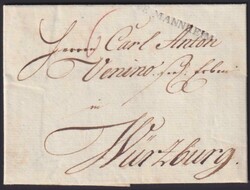 MANNHEIM
Herrn Carl Anton
Venino
in
Würzburg.